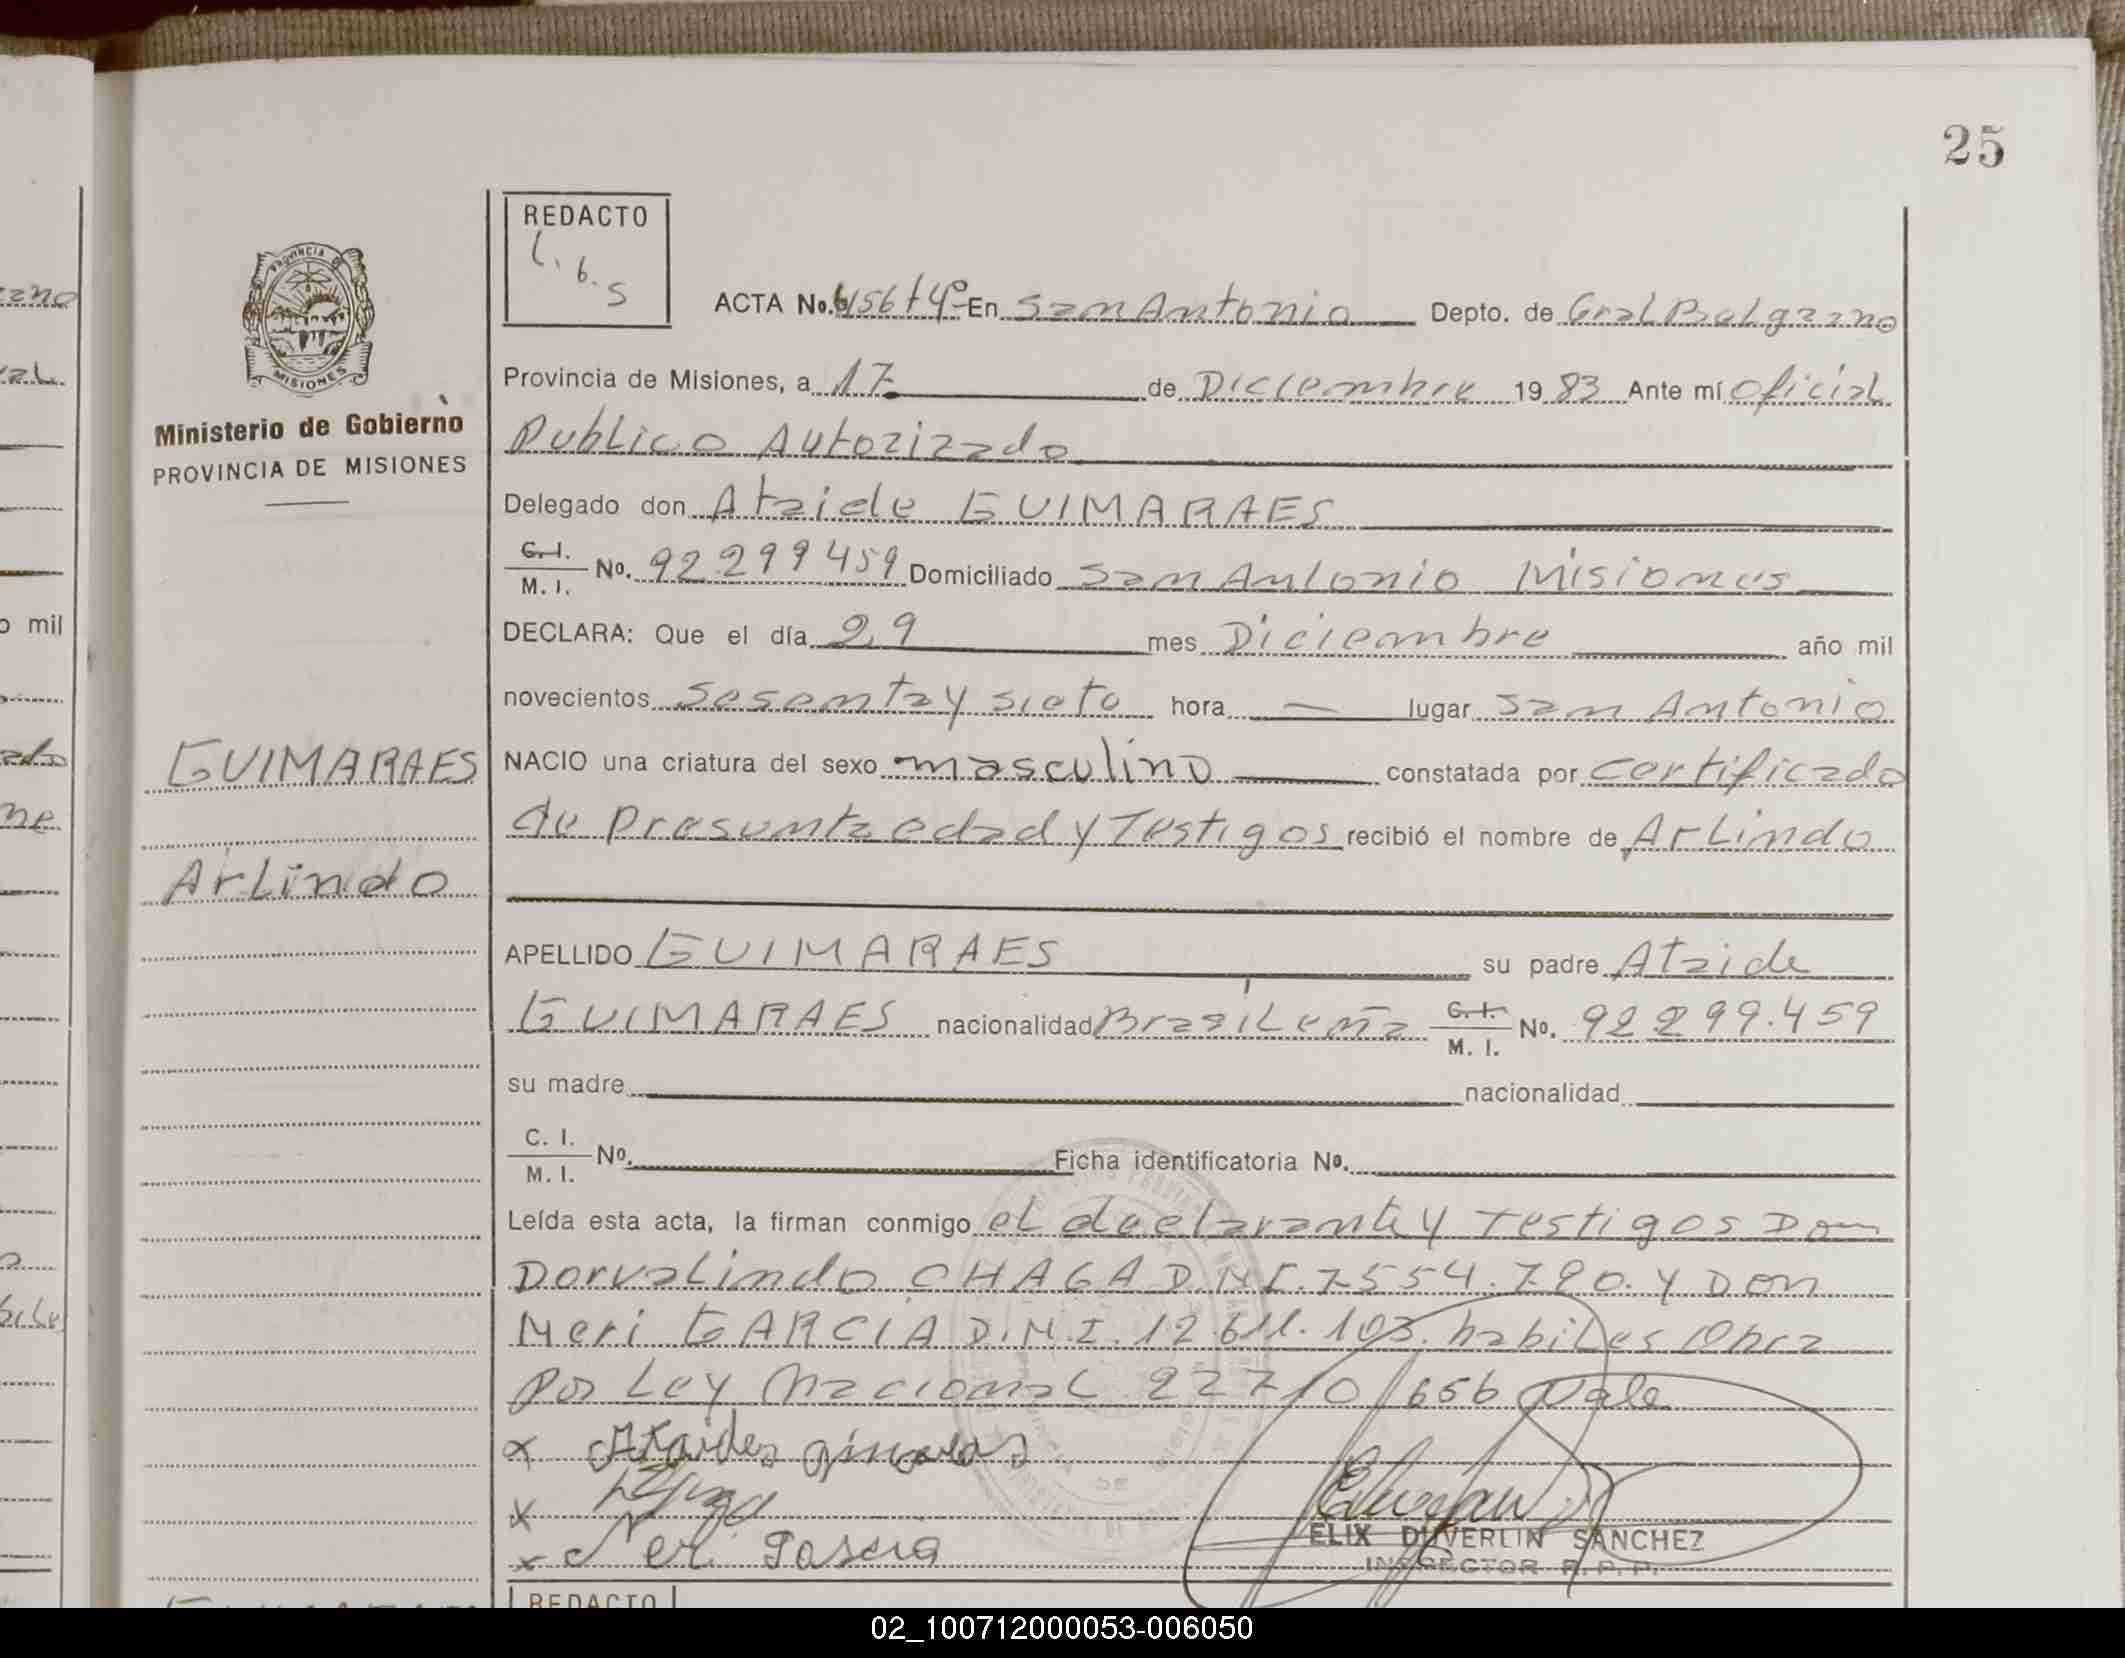 25
REDACTO
L. b. S
ACTA No. 656 t 4º En San Antonio Depto. de Gral Belgrano
PROVINCIA DE
MISIONES
Ministerio de Gobierno
PROVINCIA DE MISIONES
Provincia de Misiones, a 17 de Diciembre 19 83 Ante mí Oficial
Publico Autorizado
Delegado don Ataide GUIMARAES
C. I.
M. I. No. 92 299459 Domiciliado San Antonio Misiones
DECLARA: Que el día 29 mes Diciembre año mil
novecientos Sesenta y siete hora — lugar San Antonio
GUIMARAES
NACIO una criatura del sexo masculino constatada por certificado
de presunta edad y Testigos recibió el nombre de Arlindo
Arlindo
APELLIDO GUIMARAES su padre Ataide
GUIMARAES nacionalidad Brasileña C. I.
M. I. No. 92.299.459
su madre nacionalidad
C. I.
M. I. No. Ficha identificatoria No.
Leída esta acta, la firman conmigo el declarante y Testigos Don
Dorvalindo CHAGA D.N.I. 7554.790. y Don
Neri GARCIA D.N.I. 12.611.103. habiles Obra
por Ley Nacional 22710/656 Vale
x Ataides
x
x Neri
ELIX DUVERLIN SANCHEZ
INSPECTOR R. P. P.
REDACTO
02_100712000053-006050